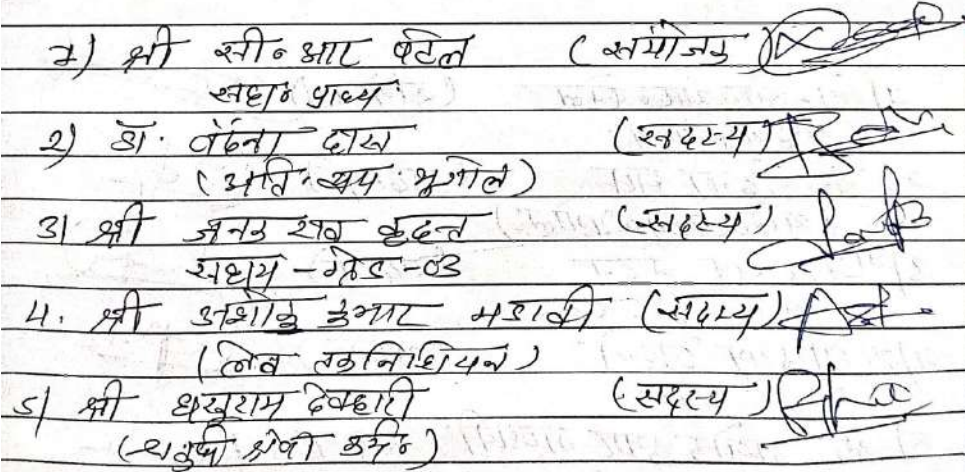 1) श्री सी॰ आर पटेल (संयोजक)
सहा॰ प्राध्य.
2) डॉ. वंदना दास (सदस्य)
(अति. सहा. भूगोल)
3) श्री जनक राव कृदत्त (सदस्य)
सहाय - ग्रेड - 03
4. श्री अशोक कुमार मडावी (सदस्य)
(लेब तकनिशियन)
5) श्री धनुराम देवहारी (सदस्य)
(चतुर्थ श्रेणी कर्म॰)